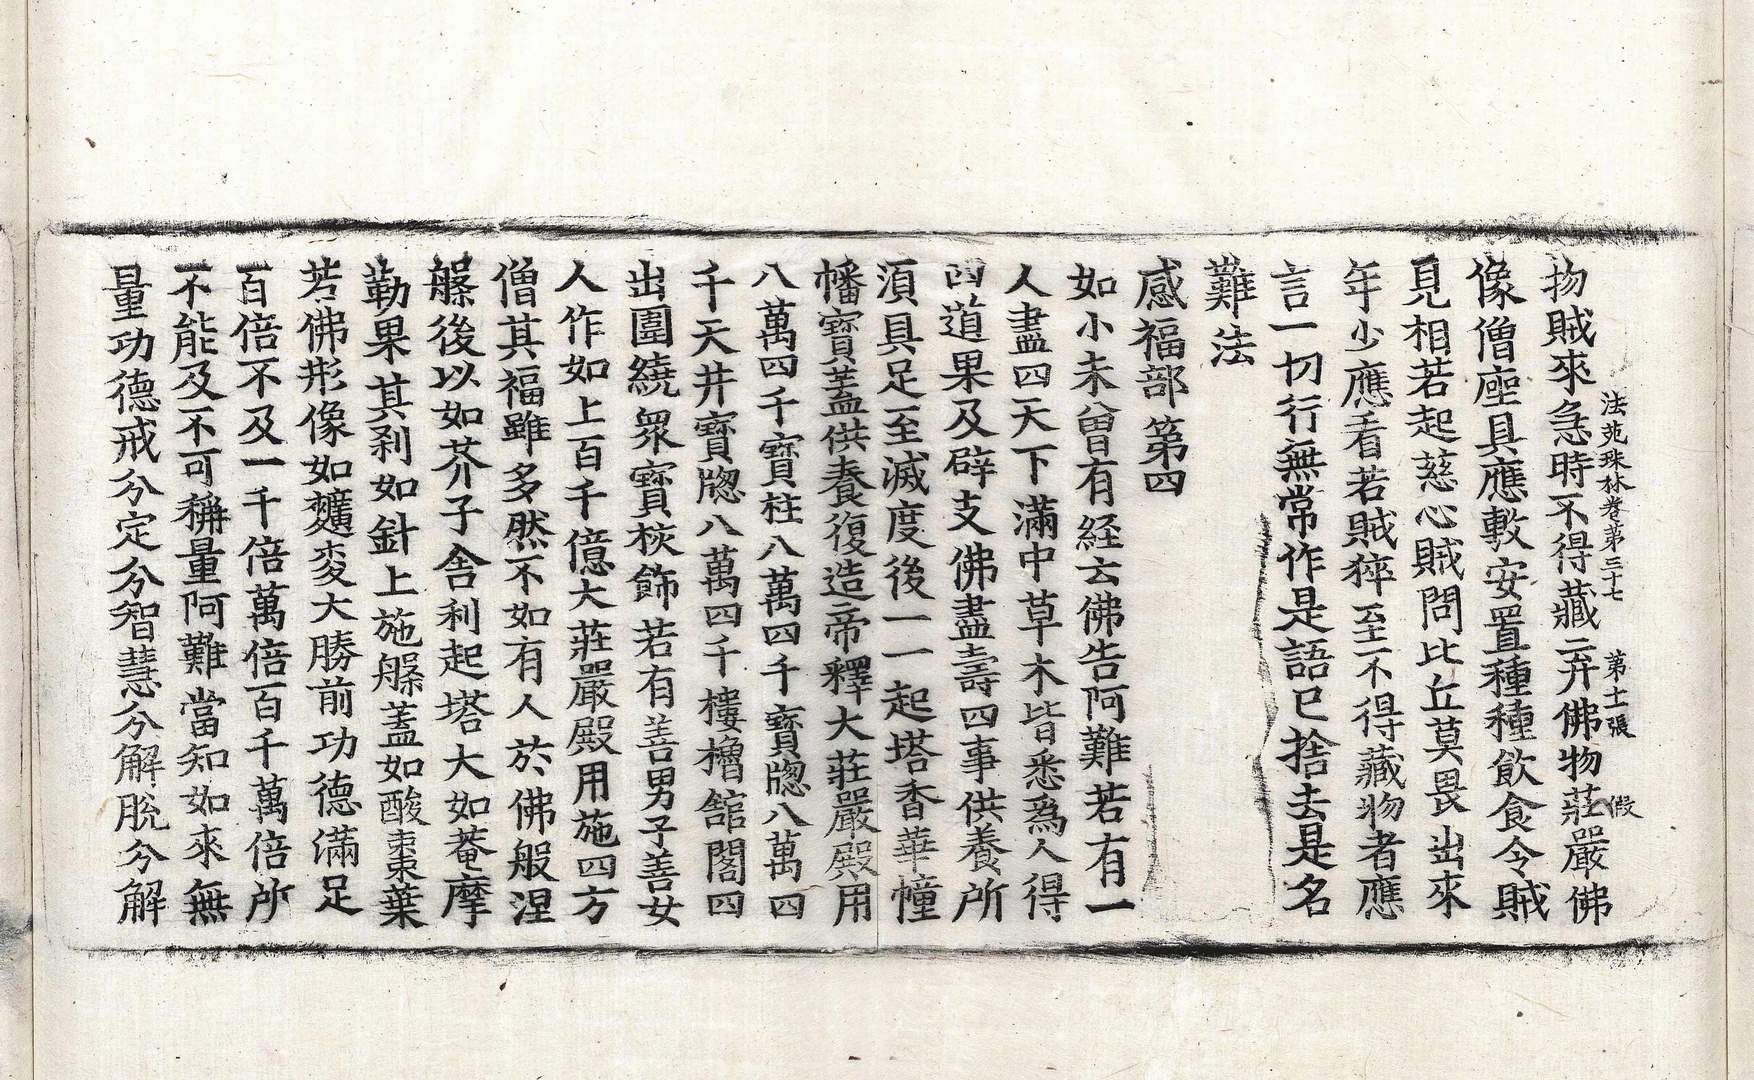 法苑珠林卷第三十七 第十二張 假
物賊來急時不得藏弃佛物莊嚴佛
像僧座具應敷安置種種飲食令賊
見相若起慈心賊問比丘莫畏出來
年少應看若賊猝至不得藏物者應
言一切行無常作是語已捨去是名
難法
感福部第四
如小未曾有経云佛告阿難若有一
人盡四天下滿中草木皆悉爲人得
四道果及辟支佛盡壽四事供養所
須具足至滅度後一一起塔香華幢
幡寶蓋供養復造帝釋大莊嚴殿用
八萬四千寶柱八萬四千寶牎八萬四
千天井寶牎八萬四千樓櫓舘閣四
出圍繞衆寶挍飾若有善男子善女
人作如上百千億大莊嚴殿用施四方
僧其福雖多然不如有人於佛般涅
槃後以如芥子舎利起塔大如菴摩
勒果其刹如針上施槃蓋如酸棗葉
若佛形像如麵麥大勝前功德滿足
百倍不及一千倍萬倍百千萬倍所
不能及不可稱量阿難當知如來無
量功德戒分定分智慧分解脫分解